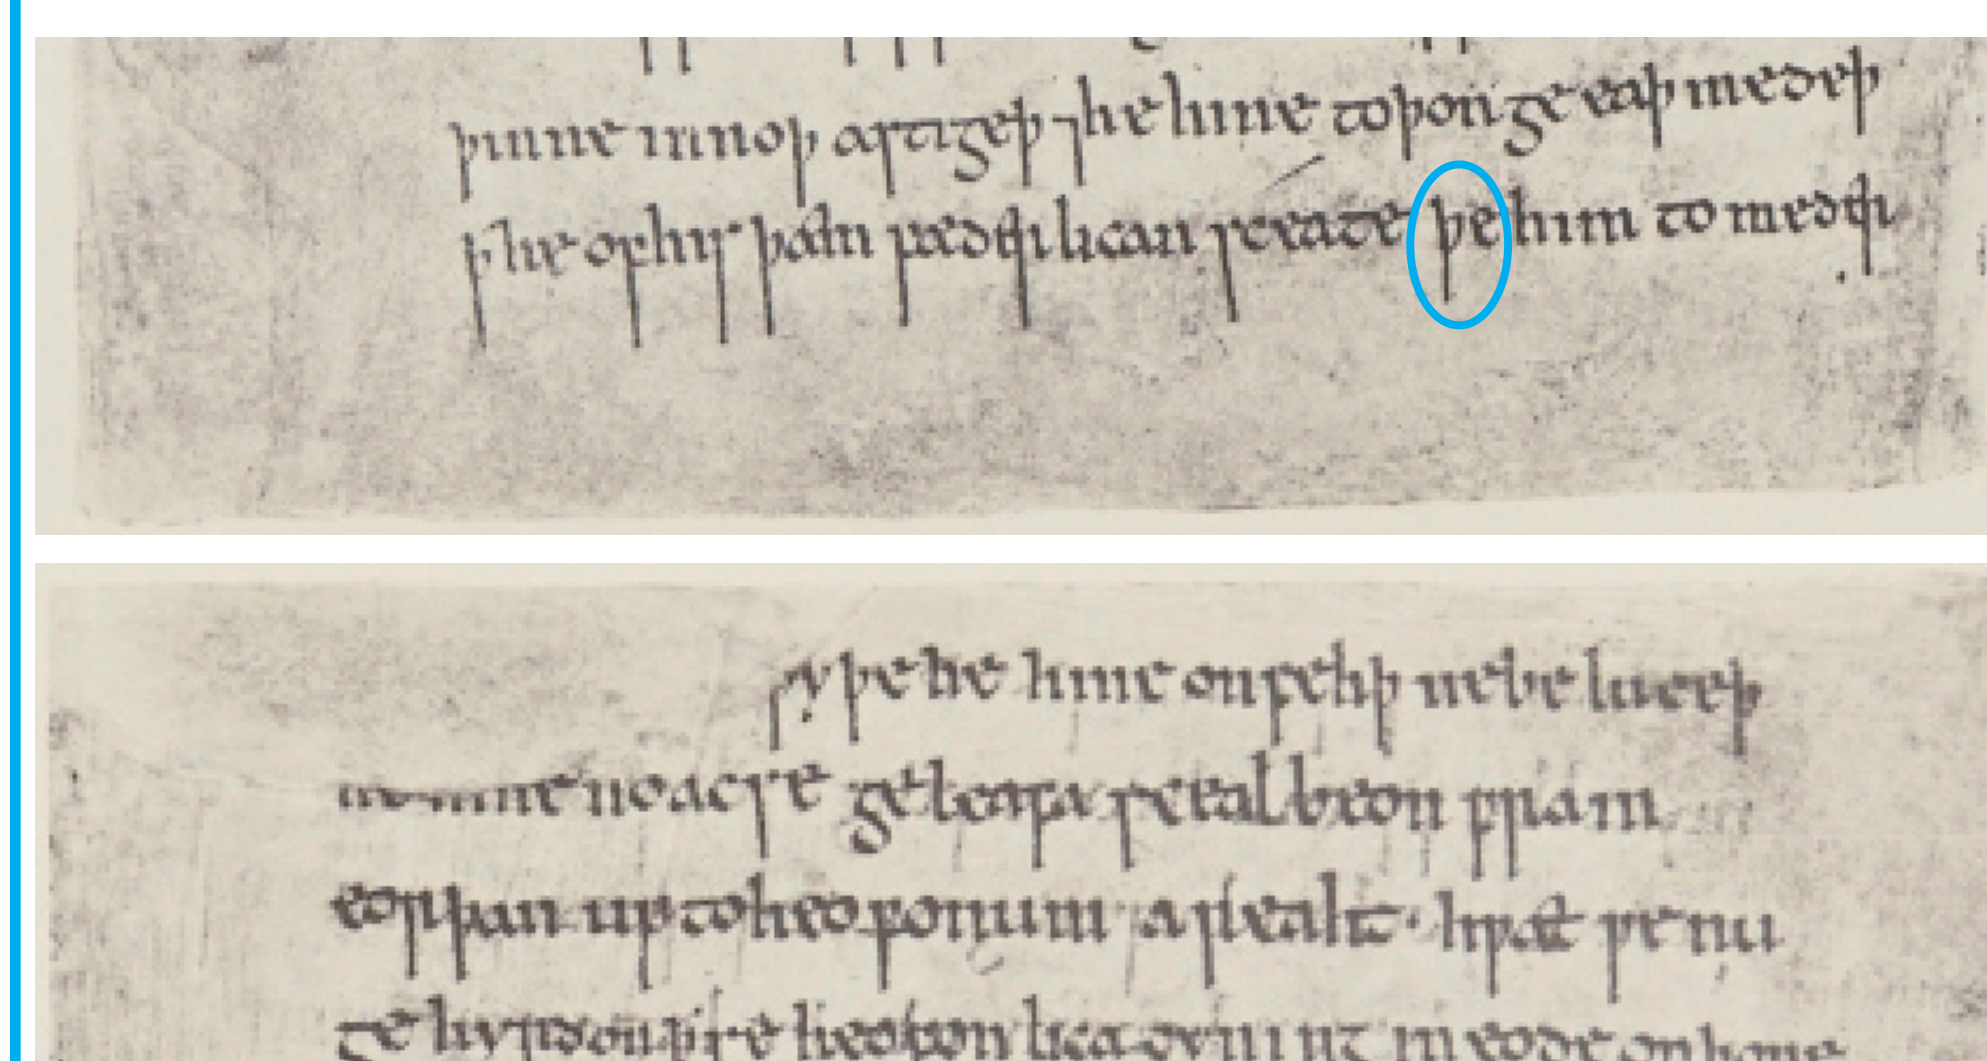 þinne innoþ astigeþ ⁊he hine toþon ge eaþ medeþ
ꝥ he ofhis þam fæderlican sceate þe him to meder
sy þe he hine onfehþ nebe luceþ
noacse ge leafa sceal beon fram
eorþan up toheofonum areaht · hwæt we nu
ge hyrdon ꝥ se heofon lica in eode